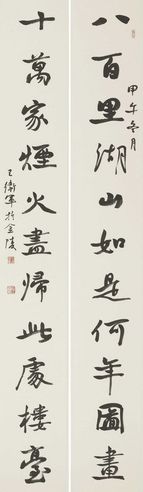 八百里湖山如是何年圖畫
甲午冬月
十萬家煙火盡歸此處樓臺
王衛軍於金陵